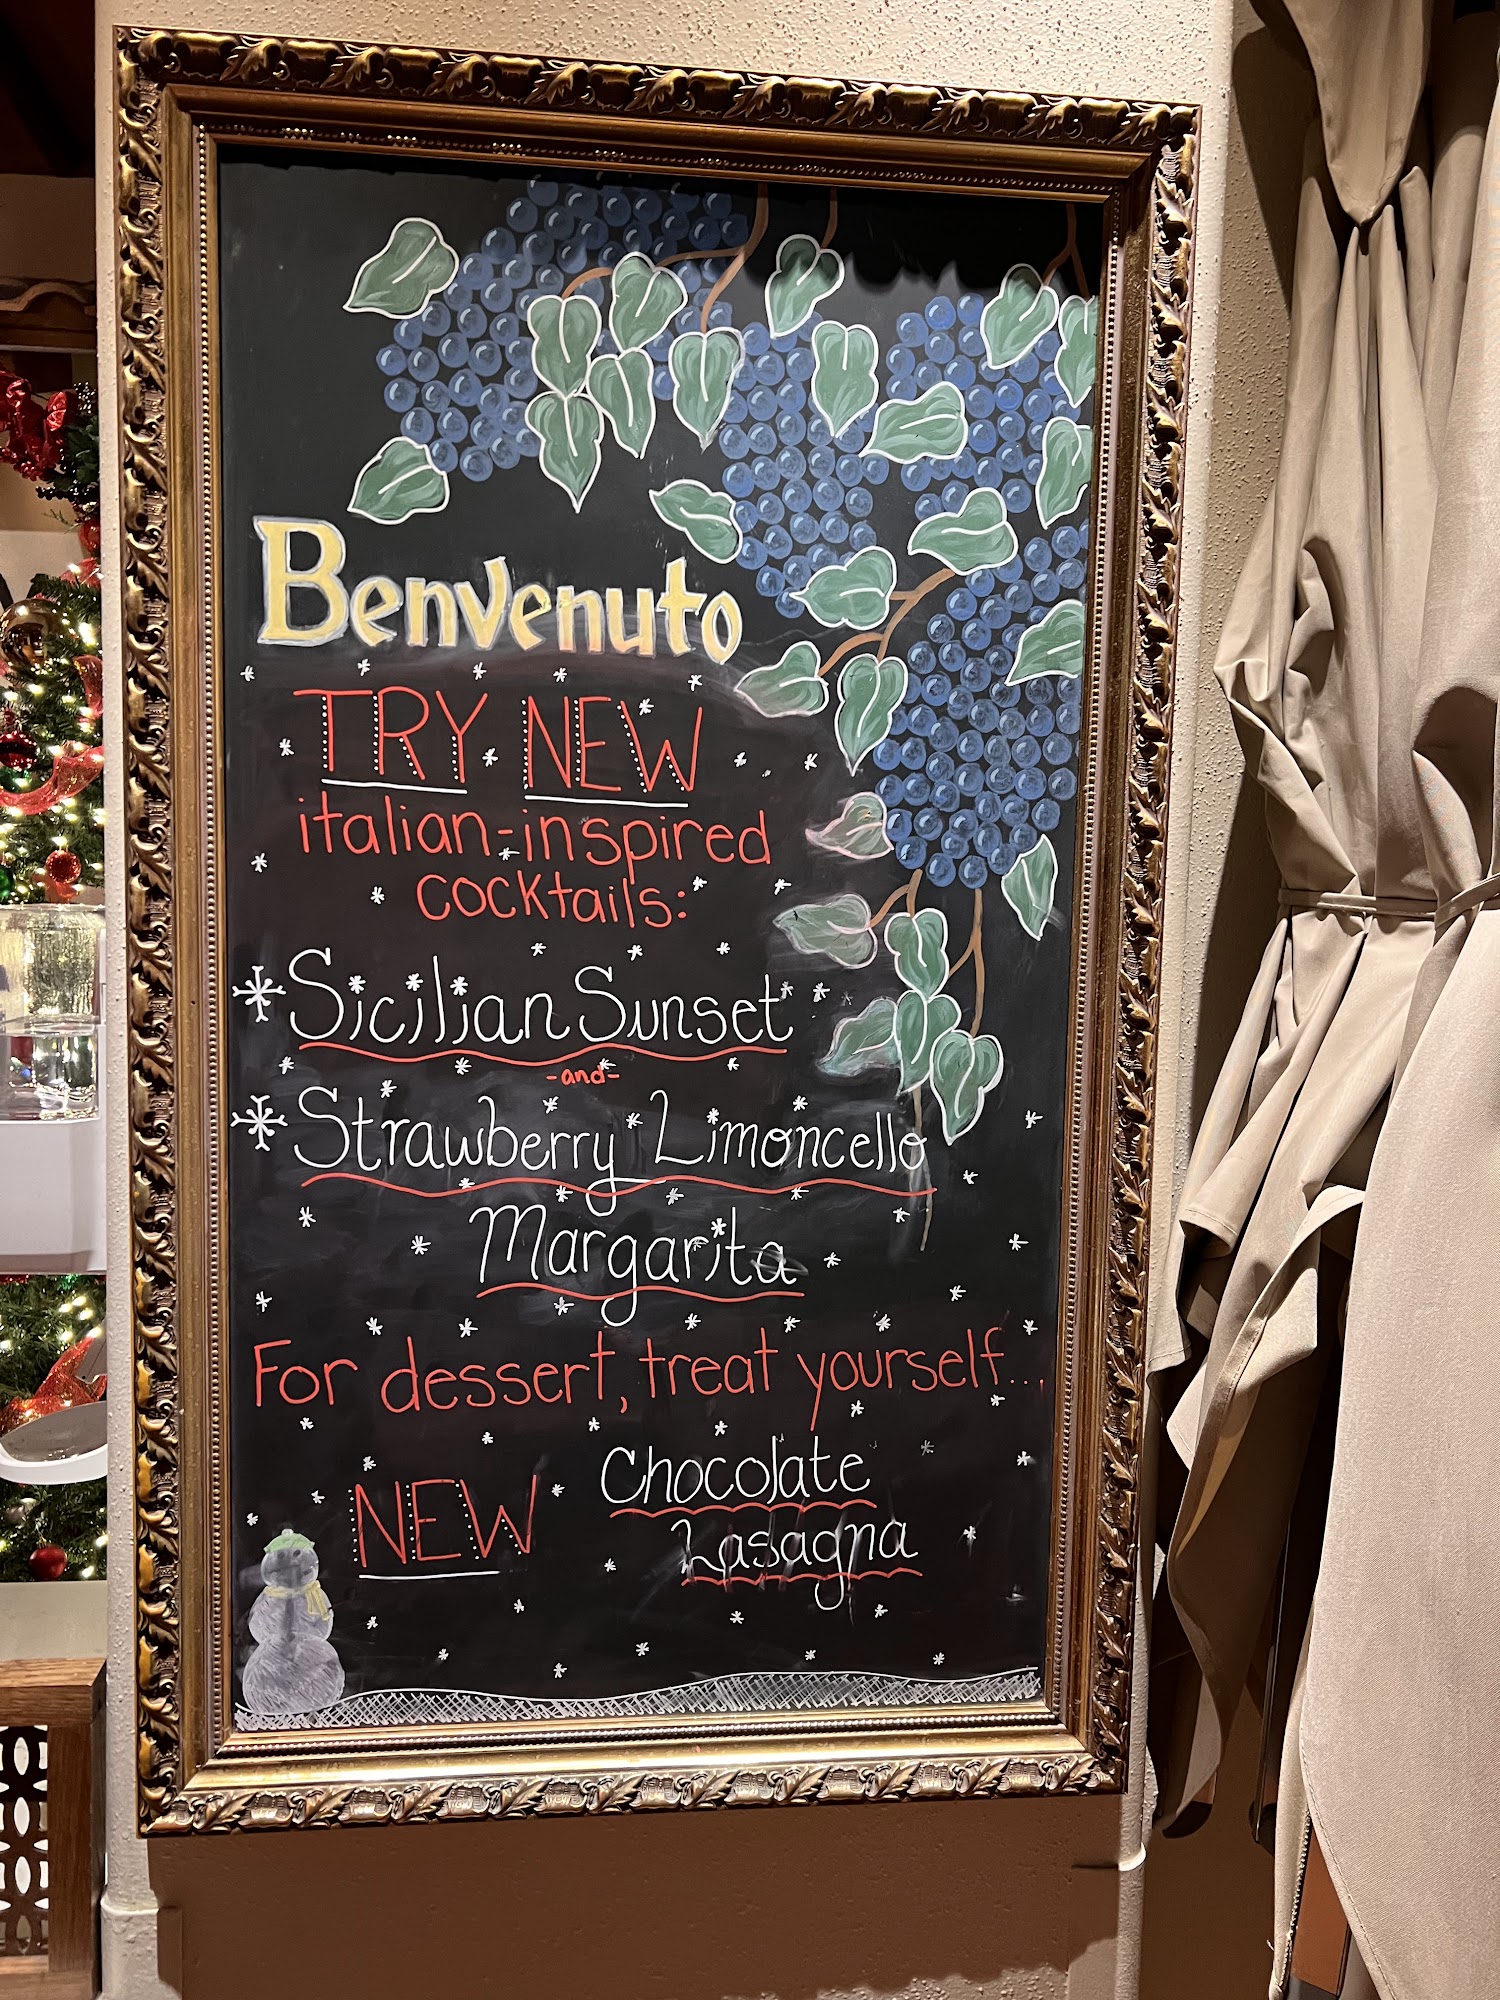 Benvenuto
TRY NEW
italian-inspired
cocktails:
Sicilian Sunset
-and-
Strawberry Limoncello
Margarita
For dessert, treat yourself...
NEW Chocolate
Lasagna